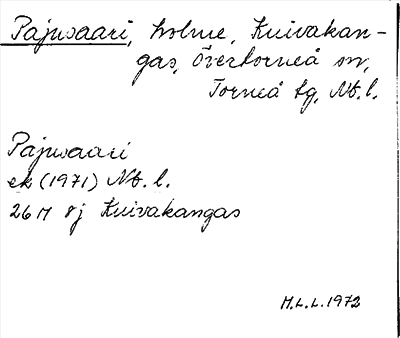 Pajusaari, holme, Kuivakan-
gas, Övertorneå sn,
Torneå tg, Nb. l.
Pajusaari
ek (1971) Nb. l.
26 M 8j Kuivakangas
M.L.L. 1972